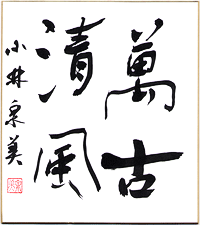 萬古
清風
小林泉美